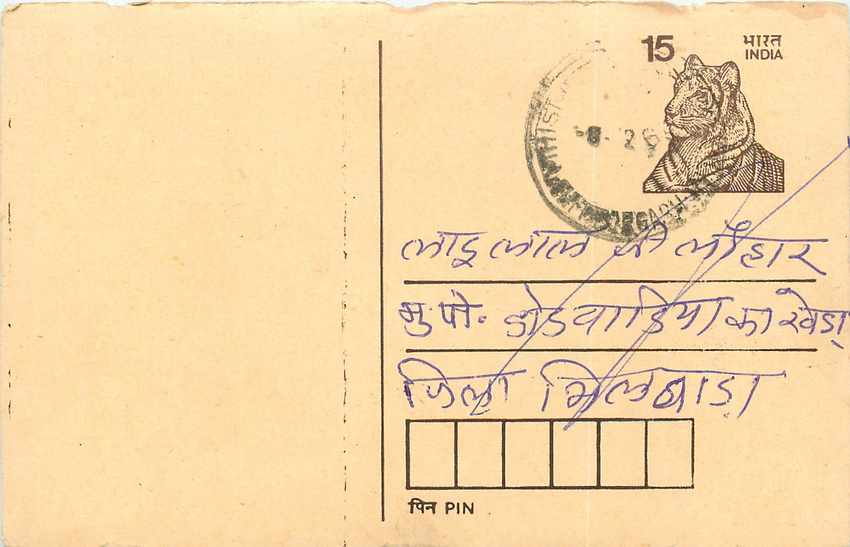 15 भारत
INDIA
लादु लाल जी लौहार
मु. पो. डोडवाडिया का खेडा
जिला भिलवाडा
पिन PIN